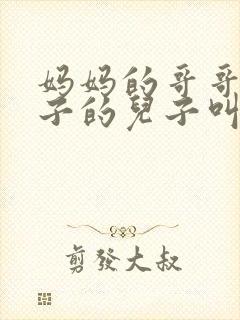 妈妈的哥哥
子的兒子叫
剪發大叔